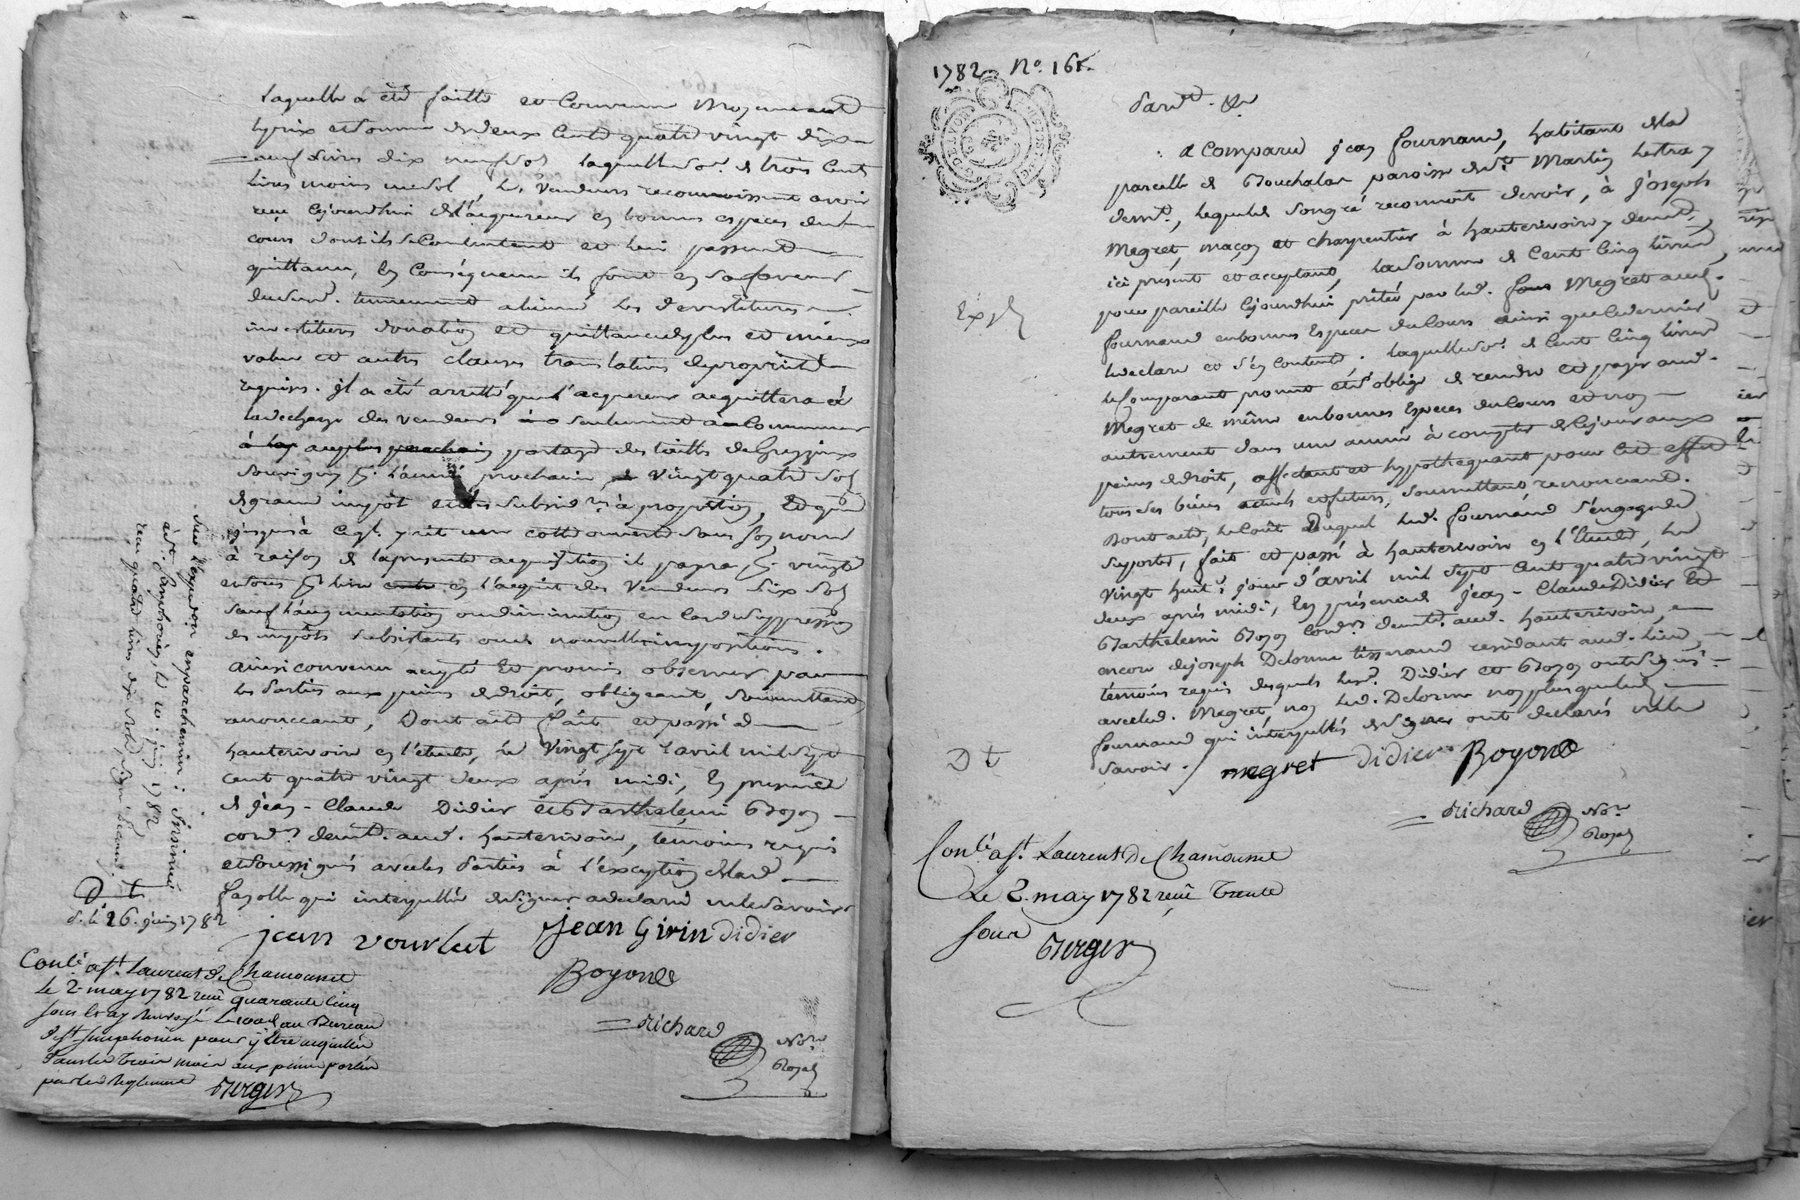 laquelle a été faitte et convenue moyennant
le prix et somme de deux cent quatre vingt dix
neuf livres dix neuf sol laquelle so.e de trois cent
livres moins un sol, les vendeurs reconnoissent avoir
reçu cejourdhui de l'acquereur en bonnes especes du
cours dont ils se contentent et lui passent
quittance, en conséquence ils font en sa faveur
dud. tennement aliené les devestitures
investitures donation et quittance du plus et mieux
value et autres clauses translatives de propriété
requises. il a été arretté que l'acquereur acquittera à
la decharge des vendeurs seulement a commencer
prochain portage des tailles de Grezieux
Souvigny pr. l'année prochaine, vingt quatre sol
de grand impôt et les subsid.res à proportion, et que
jusqu'à ce qu'il y ait une cotte ouverte sous son nom
à raison de la presente acquisition il payra pr. vingt
en l'acquit des vendeurs six sol
sauf l'augmentation ou diminution en cas de suppression
des impôts subsistants ou de nouvelles impositions.
ainsi convenu accepté et promis observer par
les parties aux peines de droit, obligeant, soumettant
renonceant, Dont acte fait et passé à
hauterivoire en l'étude, le vingt sept d'avril mil sept
cent quatre vingt deux après midi, en presence
de jean-Claude Didier et Barthelemi Boyon
cond.rs demt. aud. hauterivoire, temoins requis
et soussignés avec les parties à l'exception de lad.
fazolle qui interpellée de signer a declaré ne le savoir
jean vourlat jean Girin didier
Boyond
Richard No.re
Royal
Sur l'expedition en parchemin : insinué
à St. Simphorien, le 10. juin 1782
reçu quatre livres dix sols, signé
D t
d. le 26. juin 1782
Con.lé a St. Laurent de Chamousset
le 2 may 1782 reçu quarante cinq
sous et ay renvoyé au Bureau
de St. Simphorien pour y être acquitée
dans les trois mois aux peines portées
par les Reglemens Berger
1782 No. 161.
Pard.t &c
a comparu jean fournand, habitant de la
parcelle de Bouchalas paroisse de St. Martin Lestra y
demt., lequel de son gré reconnoit devoir, à joseph
Megret, maçon et charpentier à hauterivoire y demt.,
ici present et acceptant, la somme de cent cinq livres
pour pareille cejourdhui prêtée par led. Megret aud.
fournand en bonnes especes du cours ainsi que ce dernier
le declare et s'en contente. laquelle so.e de cent cinq livres
le comparant promet et s'oblige de rendre et payer aud.
Megret de même en bonnes especes du cours et non
autrement dans une année à compter de ce jour aux
peines de droit, affectant et hypothequant pour cet effet
tous ses biens actuels et futurs, soumettant renonceant.
Dont acte, le coût duquel led. fournand s'engage de
suporter, fait et passé à hauterivoire en l'étude, le
vingt huit.e jour d'avril mil sept cent quatre vingt
deux après midi, en présence de jean-Claude Didier et
Barthelemi Boyon cond.rs demt. aud. hauterivoire,
encore de joseph Delorme tisserand residant aud. lieu,
témoins requis desquels lesd. Didier et Boyon ont signé
avec led. Megret, non led. Delorme non plus que led.
fournand qui interpellés de signer ont declarés ne le
savoir. / megret didier Boyond
Exp
D t
Richard No.re
Royal
Con.lé a St. Laurent de Chamousset
Le 2 may 1782 reçu Trente
sous Berger